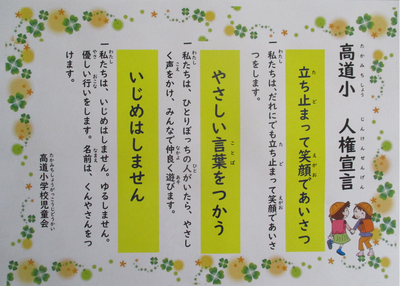 高道小　人権宣言
立ち止まって笑顔であいさつ
一私たちは、だれにでも立ち止まって笑顔であいさ
つをします。
やさしい言葉をつかう
一私たちは、ひとりぼっちの人がいたら、やさし
く声をかけ、みんなで仲良く遊びます。
いじめはしません
一私たちは、いじめはしません。ゆるしません。
優しい行いをします。名前は、くんやさんをつ
けます。
高道小学校児童会